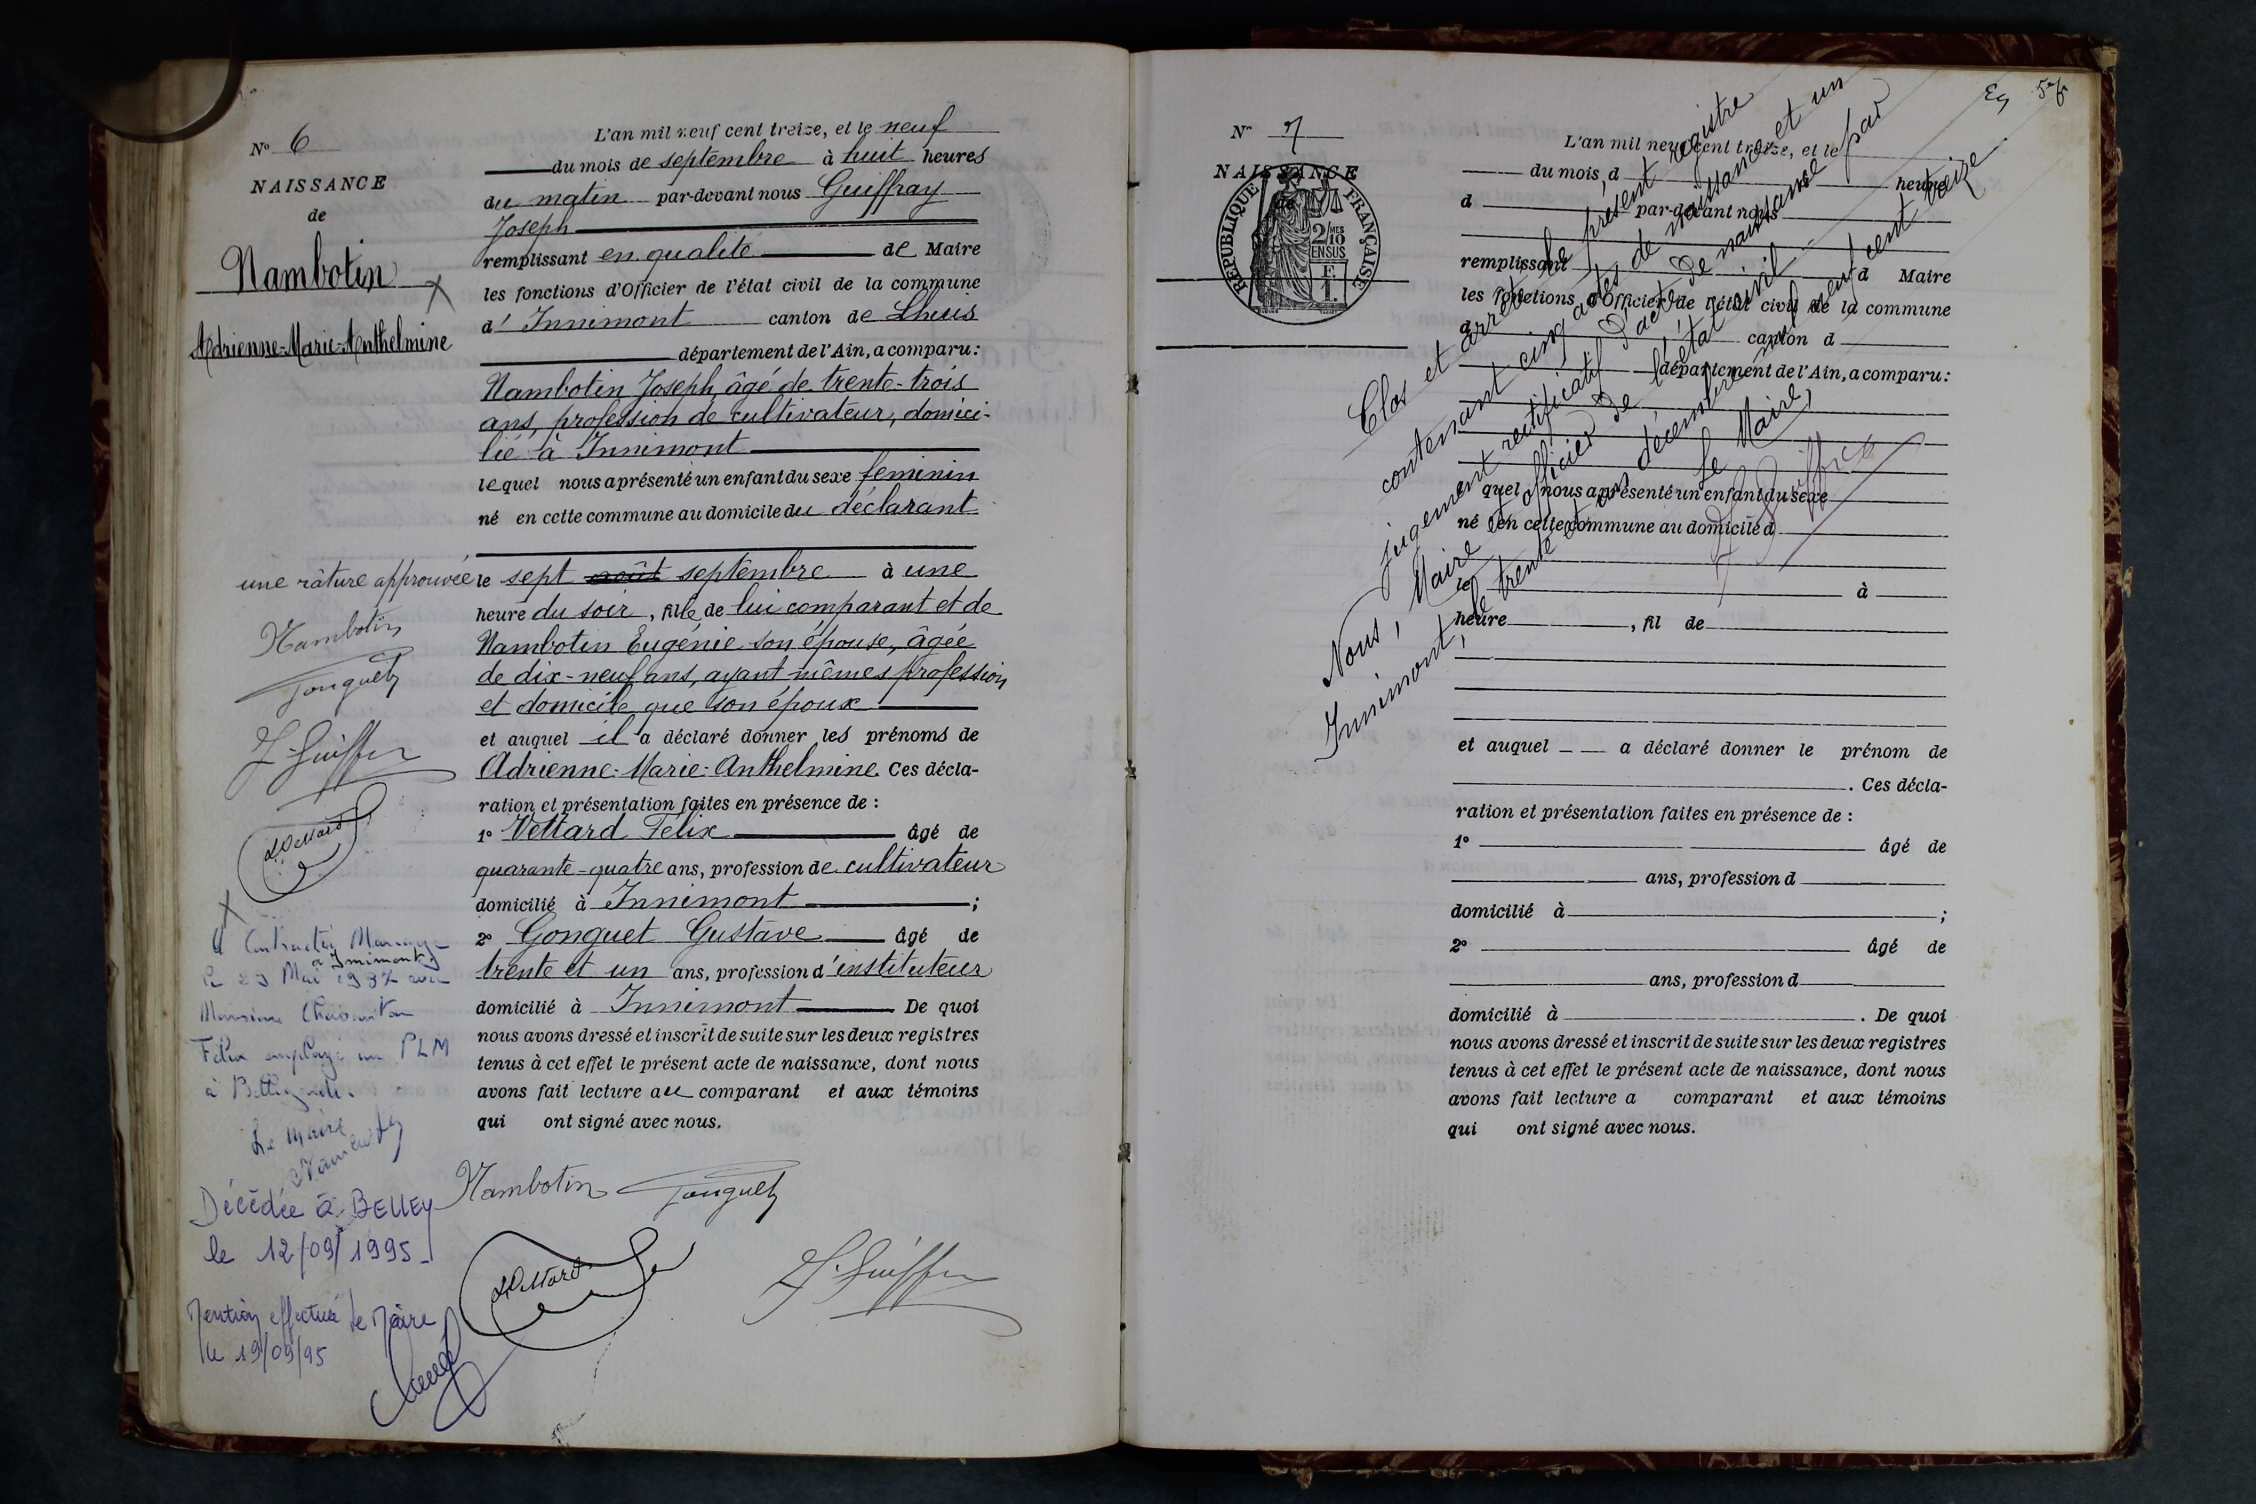 N° 6
NAISSANCE
de
Nambotin
Adrienne-Marie-Anthelmine
L'an mil neuf cent treize, et le neuf
du mois de septembre à huit heures
du matin par-devant nous Guiffray
Joseph
remplissant en qualité de Maire
les fonctions d'Officier de l'état civil de la commune
d'Innimont canton de Lhuis
département de l'Ain, a comparu:
Nambotin Joseph, âgé de trente-trois
ans, profession de cultivateur, domici-
lié à Innimont
lequel nous a présenté un enfant du sexe feminin
né en cette commune au domicile du déclarant
le sept août septembre à une
heure du soir, fille de lui comparant et de
Nambotin Eugénie son épouse, âgée
de dix-neuf ans, ayant mêmes profession
et domicile que son époux
et auquel il a déclaré donner les prénoms de
Adrienne-Marie-Anthelmine. Ces décla-
ration et présentation faites en présence de :
1° Vettard Félix âgé de
quarante-quatre ans, profession de cultivateur
domicilié à Innimont ;
2° Gonguet Gustave âgé de
trente et un ans, profession d'instituteur
domicilié à Innimont De quoi
nous avons dressé et inscrit de suite sur les deux registres
tenus à cet effet le présent acte de naissance, dont nous
avons fait lecture au comparant et aux témoins
qui ont signé avec nous.
Nambotin Gonguet
Vettard
J. Guiffray
une râture approuvée
Nambotin
Gonguet
J. Guiffray
Vettard
Contracté Mariage
à Innimont
le 29 Mai 1937 avec
Monsieur
Félix employé au PLM
à Bellegarde.
Le Maire
Décédée à BELLEY
le 12/09/1995
Mention effectuée le Maire
le 19/09/95
N° 7
NAISSANCE
de
RÉPUBLIQUE FRANÇAISE
2/10 MES
EN SUS
F.
1.
Eg
L'an mil neuf cent treize, et le
du mois d à heure
d par-devant nous
remplissant d Maire
les fonctions d'Officier de l'état civil de la commune
d canton d
département de l'Ain, a comparu:
quel nous a présenté un enfant du sexe
né en cette commune au domicile d
le à
heure , fil de
et auquel a déclaré donner le prénom de
. Ces décla-
ration et présentation faites en présence de :
1° âgé de
ans, profession d
domicilié à ;
2° âgé de
ans, profession d
domicilié à . De quoi
nous avons dressé et inscrit de suite sur les deux registres
tenus à cet effet le présent acte de naissance, dont nous
avons fait lecture a comparant et aux témoins
qui ont signé avec nous.
Clos et arrêté le présent registre
contenant cinq actes de naissance et un
jugement rectificatif d'acte de naissance par
Nous, Maire et officier de l'état civil
Innimont, le trente et un décembre mil neuf cent treize
Le Maire,
J. Guiffray